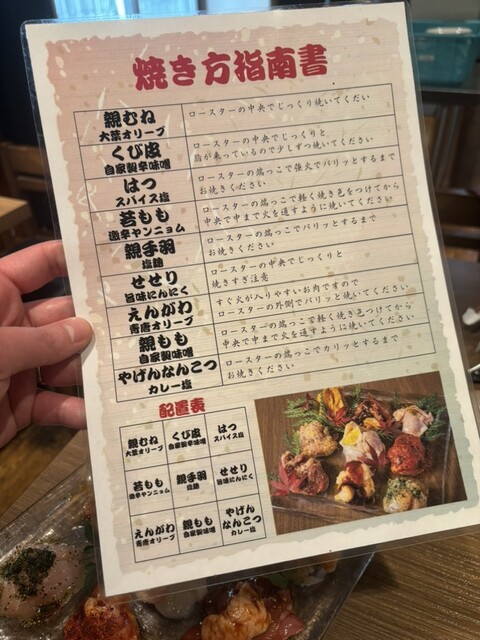 焼き方指南書
親むね
大葉オリーブ
ロースターの中央でじっくり焼いてくだい
くび皮
自家製辛味噌
ロースターの中央でじっくりと
脂が乗っているので少しずつ焼いてください
はつ
スパイス塩
ロースターの端っこで強火でパリッとするまで
お焼きください
若もも
激辛ヤンニョム
ロースターの端っこで軽く焼き色をつけてから
中央で中まで火を通すように焼いてください
親手羽
塩麹
ロースターの端っこでパリッとするまで
お焼きください
せせり
旨味にんにく
ロースターの中央でじっくりと
焼きすぎ注意
えんがわ
青唐オリーブ
すぐ火が入りやすいお肉ですので
ロースターの外側でパリッと焼いてください
親もも
自家製味噌
ロースターの端っこで軽く焼き色つけてから
中央で中まで火を通すように焼いてください
やげんなんこつ
カレー塩
ロースターの端っこでカリッとするまで
お焼きください
配置表
親むね
大葉オリーブ
くび皮
自家製辛味噌
はつ
スパイス塩
若もも
激辛ヤンニョム
親手羽
塩麹
せせり
旨味にんにく
えんがわ
青唐オリーブ
親もも
自家製味噌
やげん
なんこつ
カレー塩